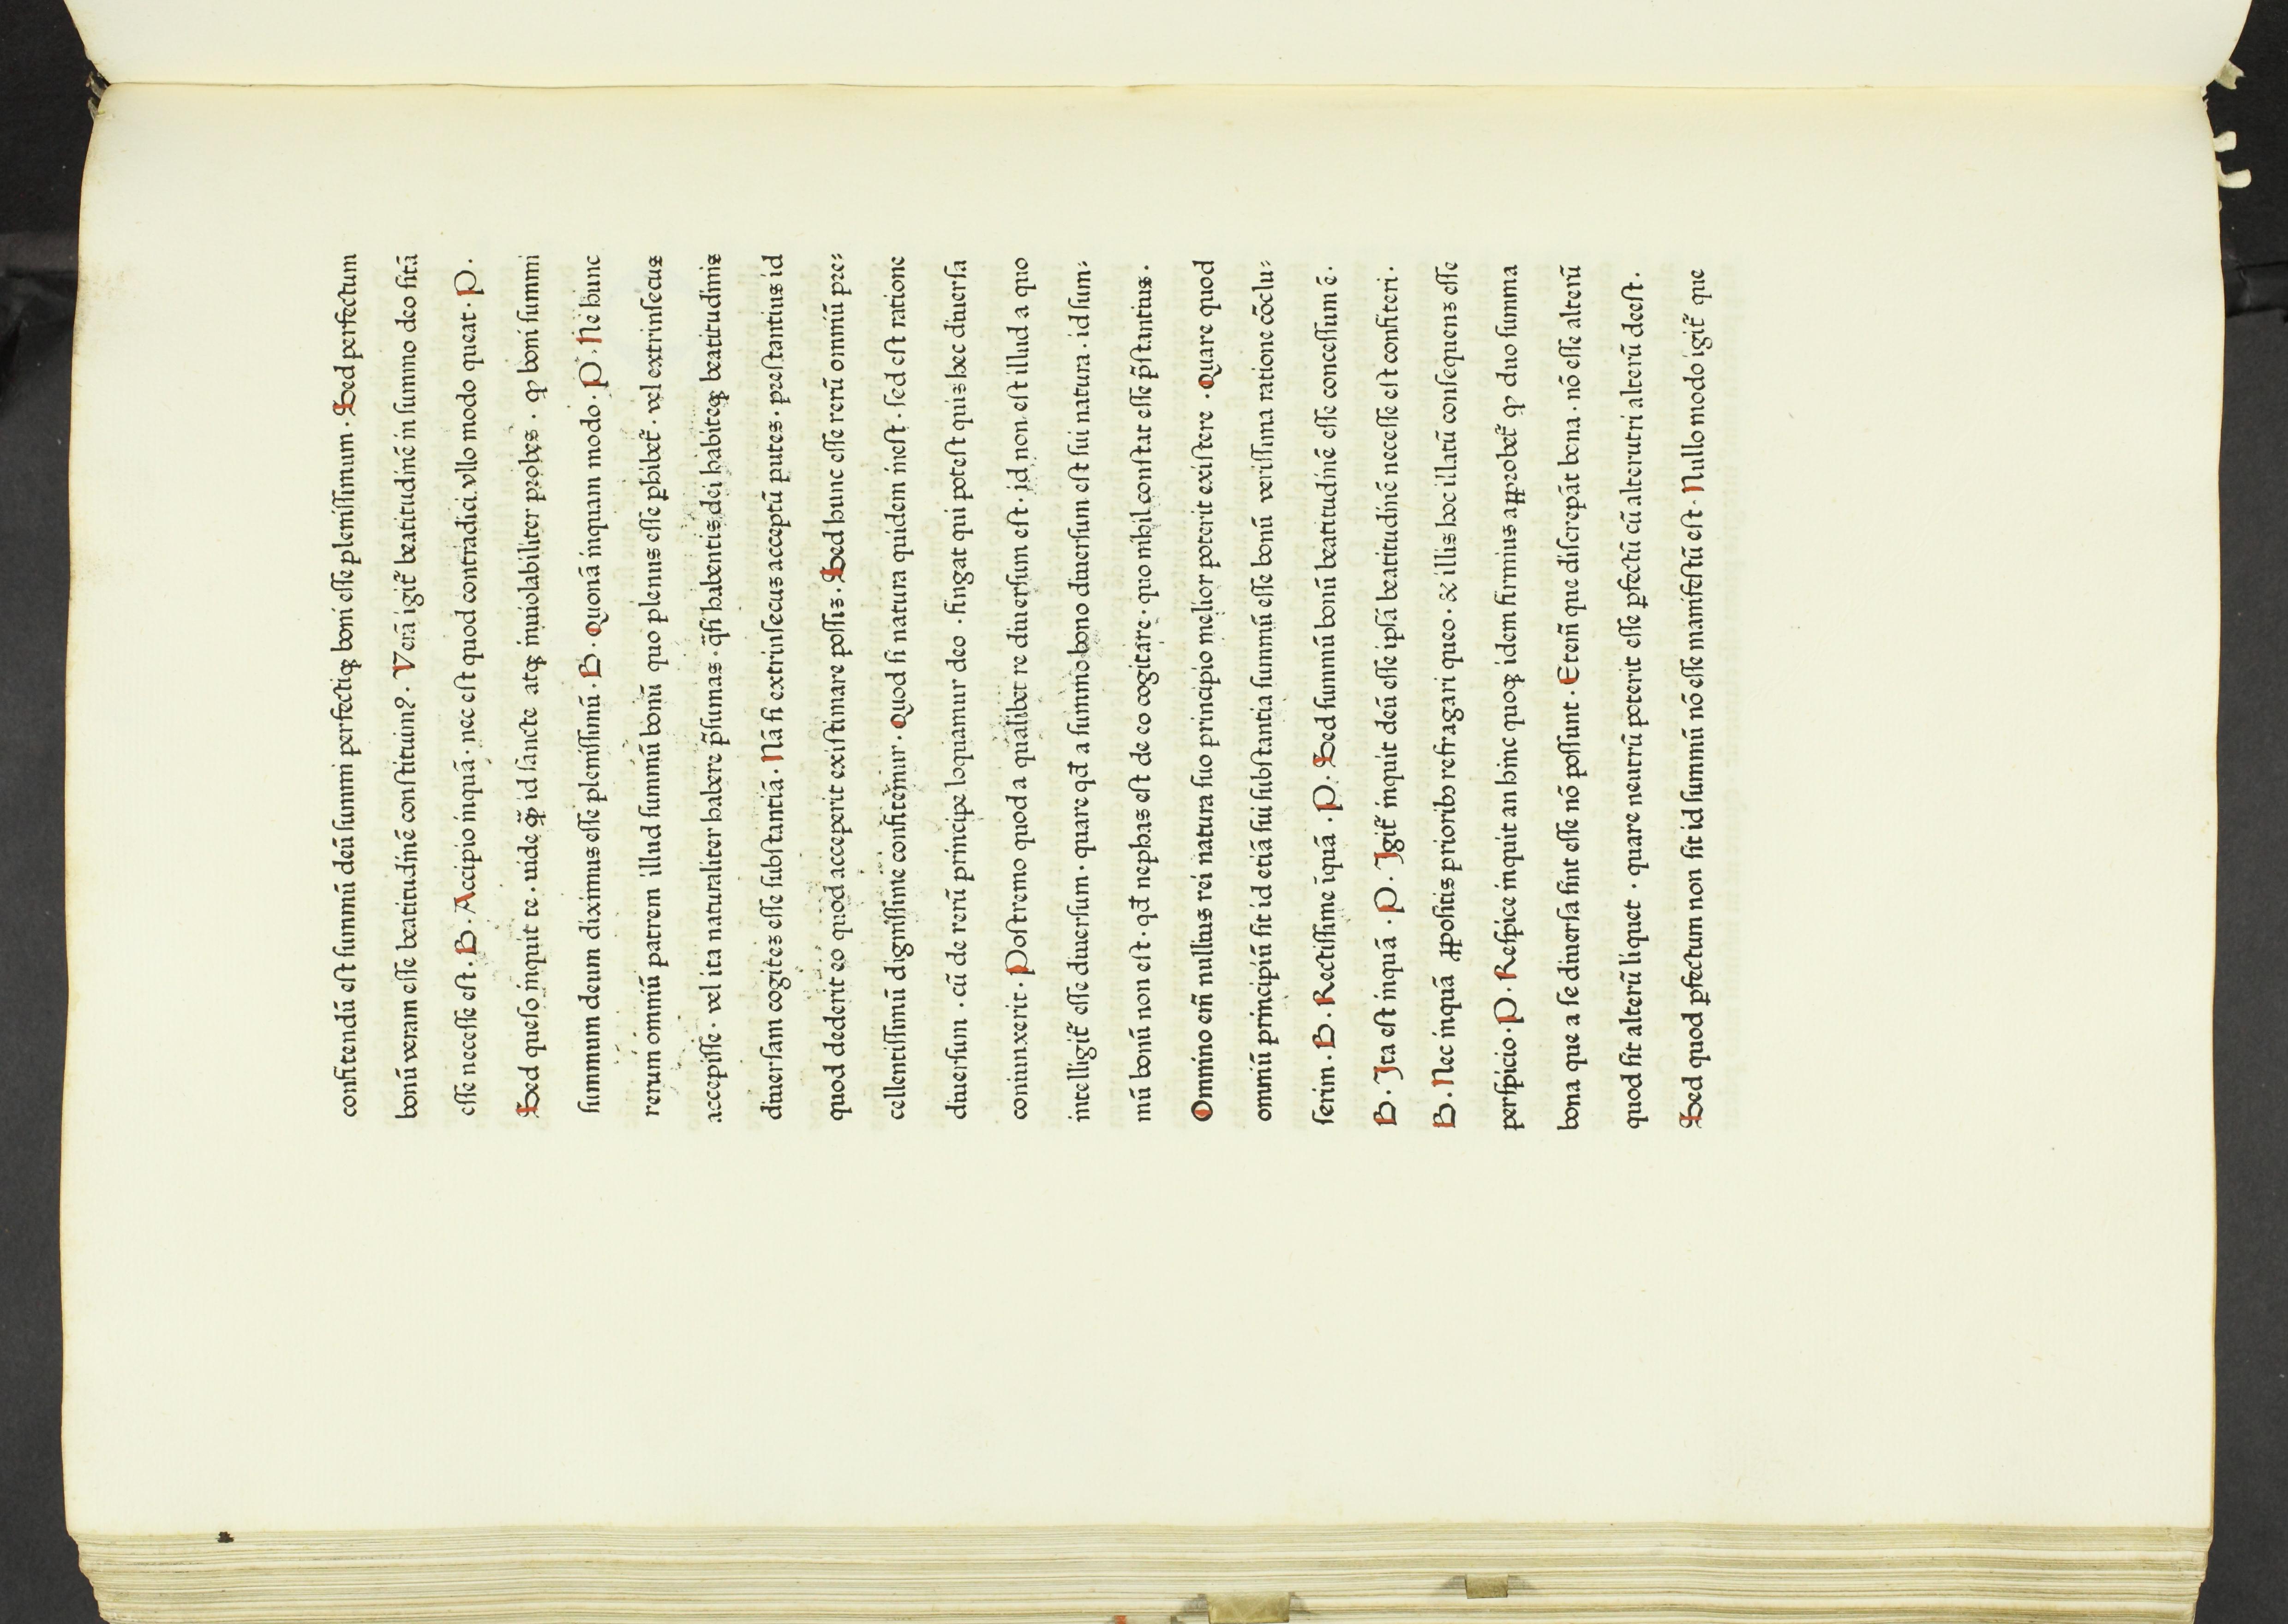 confitendū est summū deū summi perfectiqꝫ boni esse plenissimum · Sed perfectum
bonū veram esse beatitudinē constituim? · Verā igit᷑ beatitudinē in summo deo sitā
esse necesse est · B · Accipio inquā · nec est quod contradici vllo modo queat · P ·
Sed queso inquit te · uide qͫ id sancte atqꝫ inuiolabiliter probes · ꝙ boni summi
summum deum diximus esse plenissimū · B · Quonā inquam modo · P · Ne hunc
rerum omniū patrem illud summū bonū quo plenus esse ꝑhibet᷑ · vel extrinsecus
accepisse · vel ita naturaliter habere p̄sumas · q̄si habentis dei habiteqꝫ beatitudinis
diuersam cogites esse substantiā · Nā si extrinsecus acceptū putes · prestantius id
quod dederit eo quod acceperit existimare possis · Sed hunc esse rerū omniū pre⸗
cellentissimū dignissime confitemur · Quod si natura quidem inest · sed est ratione
diuersum · cū de rerū principe loquamur deo · fingat qui potest quis hec diuersa
coniunxerit · Postremo quod a qualibet re diuersum est · id non est illud a quo
intelligit᷑ esse diuersum · quare qd̄ a summo bono diuersum est sui natura · id sum⸗
mū bonū non est · qd̄ nephas est de eo cogitare · quo nihil constat esse p̄stantius ·
Omnino em̄ nullius rei natura suo principio melior poterit existere · Quare quod
omniū principiū sit id etiā sui substantia summū esse bonū verissima ratione cōclu⸗
serim · B · Rectissime īquā · P · Sed summū bonū beatitudinē esse concessum ē ·
B · Ita est inquā · P · Igit᷑ inquit deū esse ipsā beatitudinē necesse est confiteri ·
B · Nec inquā ꝓpositis prioribꝰ refragari queo · & illis hoc illatū consequens esse
perspicio · P · Respice inquit an hinc quoqꝫ idem firmius aꝓprobet᷑ ꝙ duo summa
bona que a se diuersa sint esse nō possunt · Etem̄ que discrepāt bona · nō esse alterū
quod sit alterū liquet · quare neutrū poterit esse ꝑfectū cū alterutri alterū deest ·
Sed quod ꝑfectum non sit id summū nō esse manifestū est · Nullo modo igit᷑ que